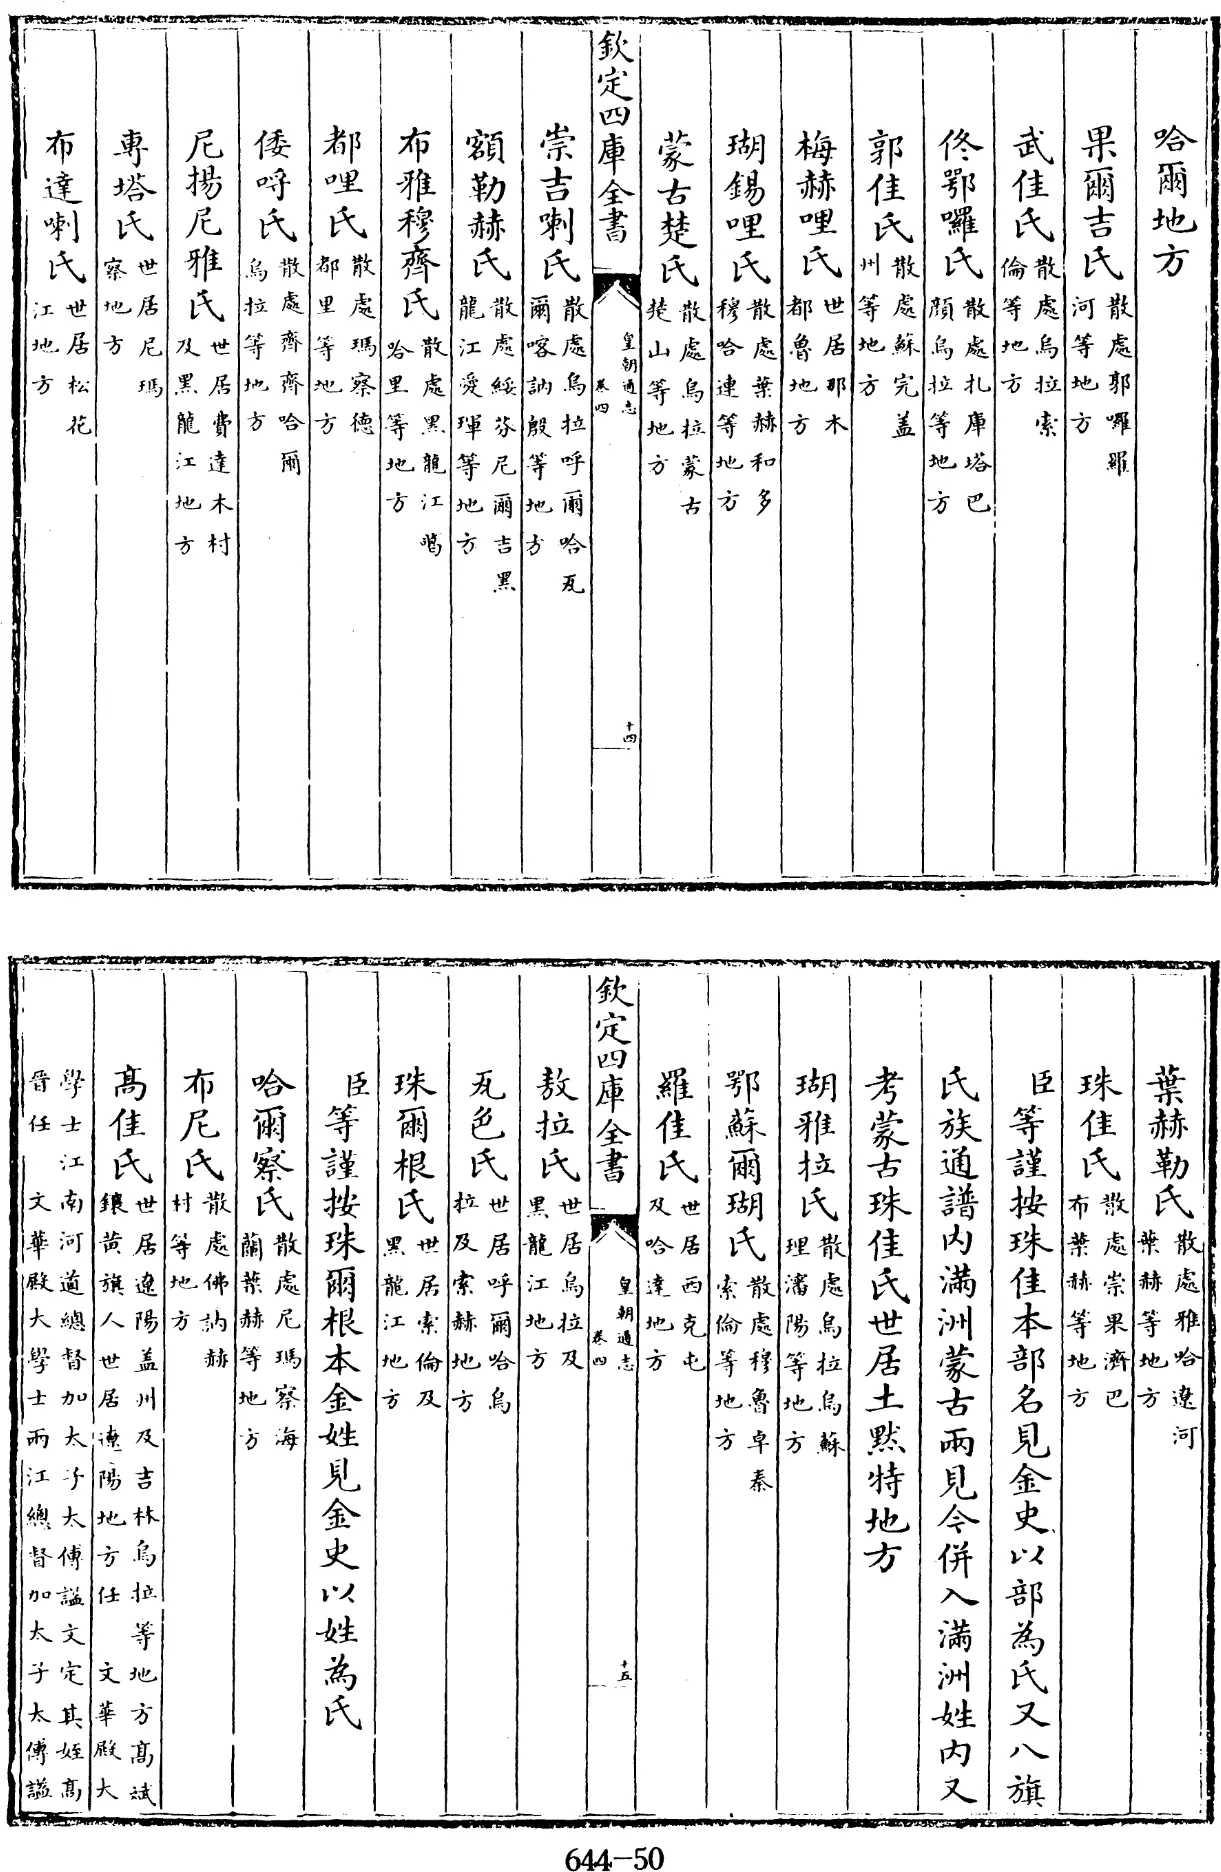 哈爾地方
果爾吉氏散處郭囉羅河等地方
武佳氏散處烏拉索倫等地方
佟鄂囉氏散處札庫塔巴顔烏拉等地方
郭佳氏散處蘇完蓋州等地方
梅赫哩氏世居那木都魯地方
瑚錫哩氏散處葉赫和多穆哈連等地方
蒙古楚氏散處烏拉蒙古楚山等地方
欽定四庫全書
皇朝通志
卷四
十四
崇吉喇氏散處烏拉呼爾哈瓦爾喀訥殷等地方
額勒赫氏散處綏芬尼爾吉黑龍江愛琿等地方
布雅穆齊氏散處黑龍江鳴哈里等地方
都哩氏散處瑪察德都里等地方
倭哷氏散處齊齊哈爾烏拉等地方
尼揚尼雅氏世居費達木村及黑龍江地方
專塔氏世居尼瑪察地方
布達喇氏世居松花江地方
葉赫勒氏散處雅哈遼河葉赫等地方
珠佳氏散處崇果濟巴布葉赫等地方
臣等謹按珠佳本部名見金史以部為氏又八旗
氏族通譜内滿洲蒙古兩見今併入滿洲姓内又
考蒙古珠佳氏世居土默特地方
瑚雅拉氏散處烏拉烏蘇理瀋陽等地方
鄂蘇爾瑚氏散處穆魯卓秦索倫等地方
羅佳氏世居西克屯及哈達地方
欽定四庫全書
皇朝通志
卷四
十五
敖拉氏世居烏拉及黑龍江地方
瓦色氏世居呼爾哈烏拉及索赫地方
珠爾根氏世居索倫及黑龍江地方
臣等謹按珠爾根本金姓見金史以姓為氏
哈爾察氏散處尼瑪察海蘭葉赫等地方
布尼氏散處佛訥赫村等地方
髙佳氏世居遼陽蓋州及吉林烏拉等地方髙斌鑲黄旗人世居遼陽地方任文華殿大
學士江南河道總督加太子太傅謚文定其姪髙晉任文華殿大學士兩江總督加太子太傅謚
644-50